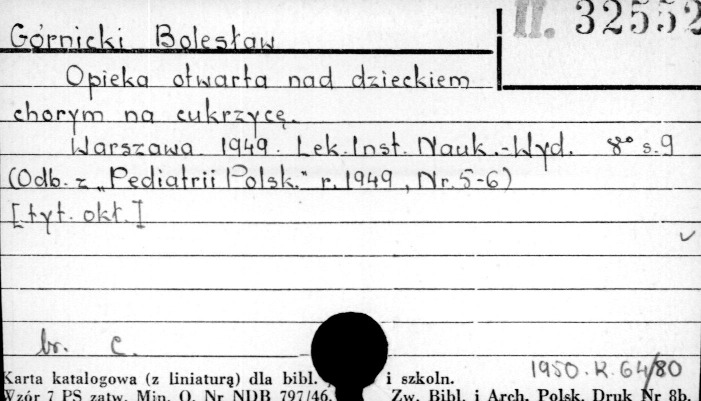 II. 32552
Górnicki Bolesław
Opieka otwarta nad dzieckiem
chorym na cukrzycę.
Warszawa 1949. Lek. Inst. Nauk.-Wyd. 8° s. 9
(Odb. z „Pediatrii Polsk." r. 1949, Nr. 5-6)
[tyt. okł.]
br. C.
1950. K. 64/80
Karta katalogowa (z liniaturą) dla bibl. i szkoln.
Wzór 7 PS zatw. Min. O. Nr NDB 797/46. Zw. Bibl. i Arch. Polsk. Druk Nr 8b.